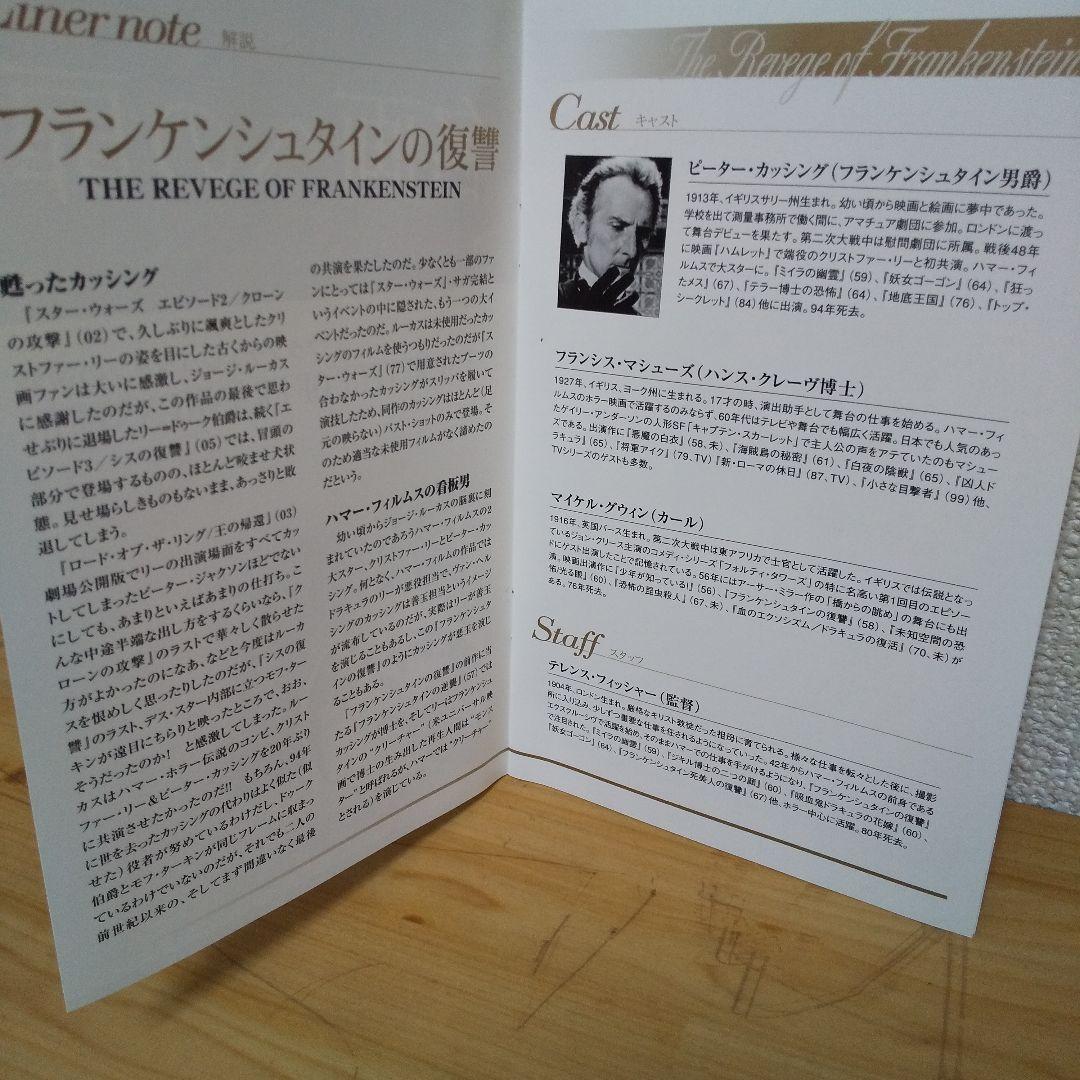 Liner note 解説
フランケンシュタインの復讐
THE REVEGE OF FRANKENSTEIN
甦ったカッシング
『スター・ウォーズ　エピソード2／クローン
の攻撃』(02)で、久しぶりに颯爽としたクリ
ストファー・リーの姿を目にした古くからの映
画ファンは大いに感激し、ジョージ・ルーカス
に感謝したのだが、この作品の最後で思わ
せぶりに退場したリー＝ドゥークー伯爵は、続く『エ
ピソード3／シスの復讐』(05)では、冒頭の
部分で登場するものの、ほとんど咬ませ犬状
態。見せ場らしきものもないまま、あっさりと敗
退してしまう。
『ロード・オブ・ザ・リング／王の帰還』(03)
劇場公開版でリーの出演場面をすべてカッ
トしてしまったピーター・ジャクソンほどでない
にしても、あまりといえばあまりの仕打ち。こ
んな中途半端な出し方をするくらいなら、『ク
ローンの攻撃』のラストで華々しく散らせた
方がよかったのになあ、などと今度はルーカ
スを恨めしく思ったりしたのだが、『シスの復
讐』のラスト、デス・スター内部に立つモフ・ター
キンが遠目にちらりと映ったところで、おお、
そうだったのか！　と感激してしまった。ルー
カスはハマー・ホラー伝説のコンビ、クリスト
ファー・リー&ピーター・カッシングを20年ぶり
に共演させたかったのだ!!　もちろん、94年
に世を去ったカッシングの代わりはよく似た(似
せた)役者が努めているわけだし、ドゥークー
伯爵とモフ・ターキンが同じフレームに収まっ
ているわけでいないのだが、それでも二人の
前世紀以来の、そしてまず間違いなく最後
の共演を果たしたのだ。少なくとも一部のファ
ンにとっては『スター・ウォーズ』・サガ完結と
いうイベントの中に隠された、もう一つの大イ
ベントだったのだ。ルーカスは未使用だったカッ
シングのフィルムを使うつもりだったのだが『ス
ター・ウォーズ』(77)で用意されたブーツの
合わなかったカッシングがスリッパを履いて
演技したため、同作のカッシングはほとんど(足
元の映らない)バスト・ショットのみで登場。そ
のため適当な未使用フィルムがなく諦めたの
だという。
ハマー・フィルムスの看板男
幼い頃からジョージ・ルーカスの脳裏に刻
まれていたのであろうハマー・フィルムスの2
大スター、クリストファー・リーとピーター・カッ
シング。何となく、ハマー・フィルムの作品では
ドラキュラのリーが悪役担当で、ヴァン・ヘル
シングのカッシングは善玉担当というイメージ
が流布しているのだが、実際はリーが善玉
を演じることもあるし、この『フランケンシュタ
インの復讐』のようにカッシングが悪玉を演じ
ることもある。
『フランケンシュタインの復讐』の前作に当
たる『フランケンシュタインの逆襲』(57)では
カッシングが博士を、そしてリーはフランケンシュ
タインの“クリーチャー”(米ユニバーサル映
画で博士の生み出した再生人間は“モンス
ター”と呼ばれるが、ハマーでは“クリーチャー”
とされる)を演じている。
The Revege of Frankenstein
Cast キャスト
ピーター・カッシング(フランケンシュタイン男爵)
1913年、イギリスサリー州生まれ。幼い頃から映画と絵画に夢中であった。
学校を出て測量事務所で働く間に、アマチュア劇団に参加。ロンドンに渡っ
て舞台デビューを果たす。第二次大戦中は慰問劇団に所属。戦後48年
に映画『ハムレット』で端役のクリストファー・リーと初共演。ハマー・フィ
ルムスで大スターに。『ミイラの幽霊』(59)、『妖女ゴーゴン』(64)、『狂っ
たメス』(67)、『テラー博士の恐怖』(64)、『地底王国』(76)、『トップ・
シークレット』(84)他に出演。94年死去。
フランシス・マシューズ(ハンス・クレーヴ博士)
1927年、イギリス、ヨーク州に生まれる。17才の時、演出助手として舞台の仕事を始める。ハマー・フィ
ルムスのホラー映画で活躍するのみならず、60年代はテレビや舞台でも幅広く活躍。日本でも人気のあっ
たゲイリー・アンダーソンの人形SF『キャプテン・スカーレット』で主人公の声をアテていたのもマシュー
ズである。出演作に『悪魔の白衣』(58、未)、『海賊島の秘密』(61)、『白夜の陰獣』(65)、『凶人ド
ラキュラ』(65)、『将軍アイク』(79、TV)『新・ローマの休日』(87、TV)、『小さな目撃者』(99)他、
TVシリーズのゲストも多数。
マイケル・グウィン(カール)
1916年、英国バース生まれ。第二次大戦中は東アフリカで士官として活躍した。イギリスでは伝説となっ
ているジョン・クリース主演のコメディ・シリーズ『フォルティ・タワーズ』の特に名高い第1回目のエピソー
ドにゲスト出演したことで記憶されている。56年にはアーサー・ミラー作の『橋からの眺め』の舞台にも出
演。映画出演作に『少年が知っている!』(56)、『フランケンシュタインの復讐』(58)、『未知空間の恐
怖／光る眼』(60)、『恐怖の昆虫殺人』(67、未)、『血のエクソシズム／ドラキュラの復活』(70、未)が
ある。76年死去。
Staff スタッフ
テレンス・フィッシャー(監督)
1904年、ロンドン生まれ。厳格なキリスト教徒だった祖母に育てられる。様々な仕事を転々とした後に、撮影
所に入り込み、少しずつ重要な仕事を任されるようになっていった。42年からハマー・フィルムスの前身である
エクスクルーシヴで活躍を始め、そのままハマーでの仕事を手がけるようになり、『フランケンシュタインの復讐』
で注目された。『ミイラの幽霊』(59)、『ジキル博士の二つの顔』(60)、『吸血鬼ドラキュラの花嫁』(60)、
『妖女ゴーゴン』(64)、『フランケンシュタイン死美人の復讐』(67)他、ホラー中心に活躍。80年死去。